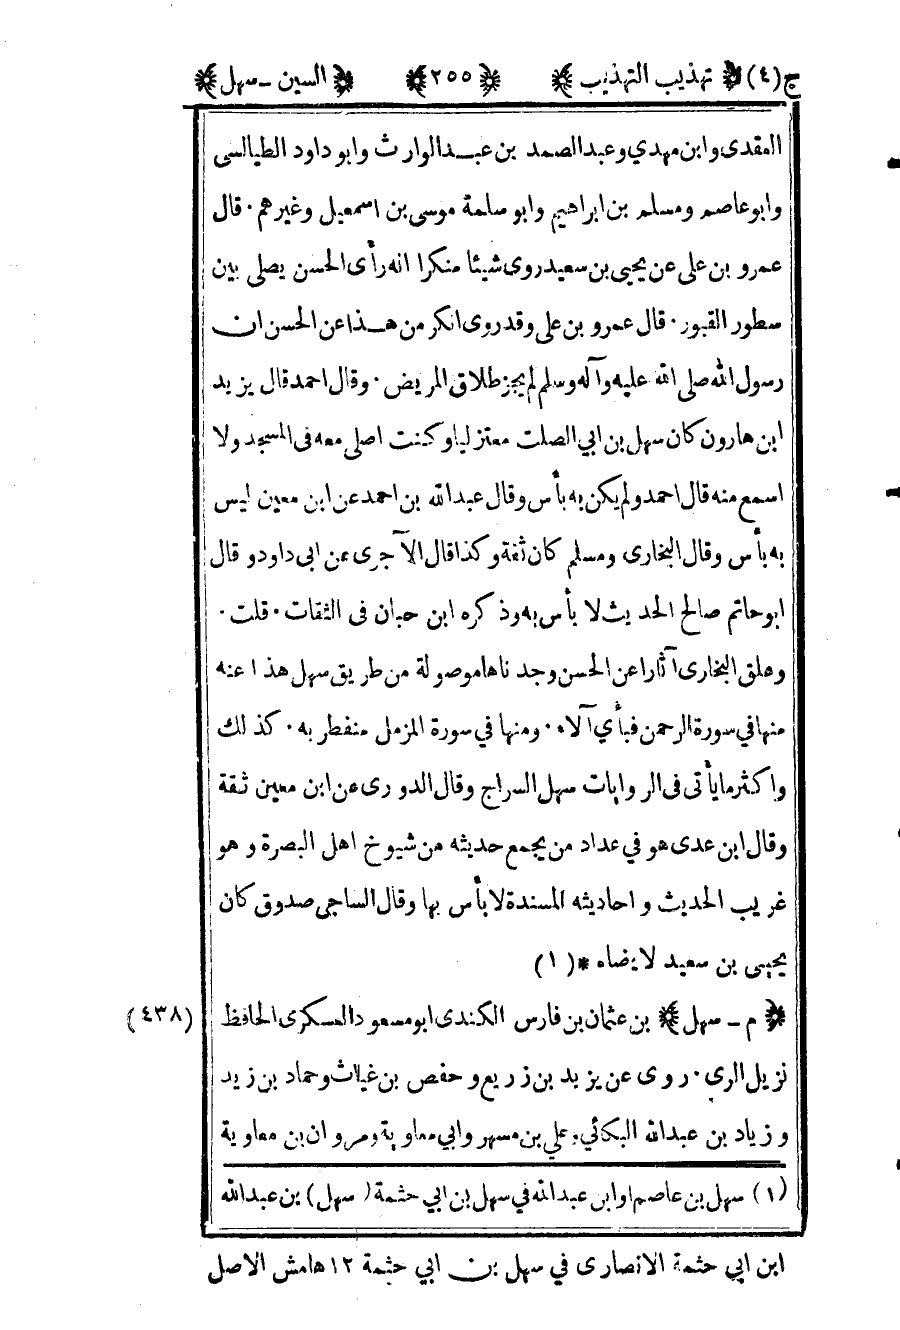 ج(٤) ﴿تهذيب التهذيب﴾ ﴿٢٥٥﴾ ﴿السين - سهل﴾
المقدى وابن مهدي وعبد الصمد بن عبد الوارث وابو داود الطيالسى
وابو عاصم ومسلم بن ابراهيم وابو سلمة موسى بن اسمعيل وغيرهم · قال
عمرو بن على عن يحيى بن سعيد روى شيئا منكرا انه رأى الحسن يصلى بين
سطور القبور · قال عمرو بن على وقد روى انكر من هذا عن الحسن ان
رسول الله صلى الله عليه وآله وسلم لم يجز طلاق المريض · وقال احمد قال يزيد
ابن هارون كان سهل بن ابي الصلت معتزليا وكنت اصلى معه فى المسجد ولا
اسمع منه قال احمد ولم يكن به بأس وقال عبد الله بن احمد عن ابن معين ليس
به بأس وقال البخارى ومسلم كان ثقة وكذا قال الآجرى عن ابى داود وقال
ابو حاتم صالح الحديث لا بأس به وذكره ابن حبان فى الثقات · قلت ·
وعلق البخارى آثارا عن الحسن وجدناها موصولة من طريق سهل هذا عنه
منها في سورة الرحمن فبأي آلاء · ومنها في سورة المزمل منفطر به · كذلك
واكثر ما يأتى فى الروايات سهل السراج وقال الدورى عن ابن معين ثقة
وقال ابن عدى هو في عداد من يجمع حديثه من شيوخ اهل البصرة وهو
غريب الحديث واحاديثه المسندة لا بأس بها وقال الساجى صدوق كان
يحيى بن سعيد لا يرضاه *(١)
﴿م - سهل﴾ بن عثمان بن فارس الكندى ابو مسعود العسكرى الحافظ (٤٣٨)
نزيل الري · روى عن يزيد بن زريع وحفص بن غياث وحماد بن زيد
وزياد بن عبد الله البكائي وعلي بن مسهر وابي معاوية ومروان بن معاوية
(١) سهل بن عاصم او ابن عبد الله في سهل بن ابي حثمة (سهل) بن عبد الله
ابن ابي حثمة الانصارى في سهل بن ابي حثمة ١٢ هامش الاصل